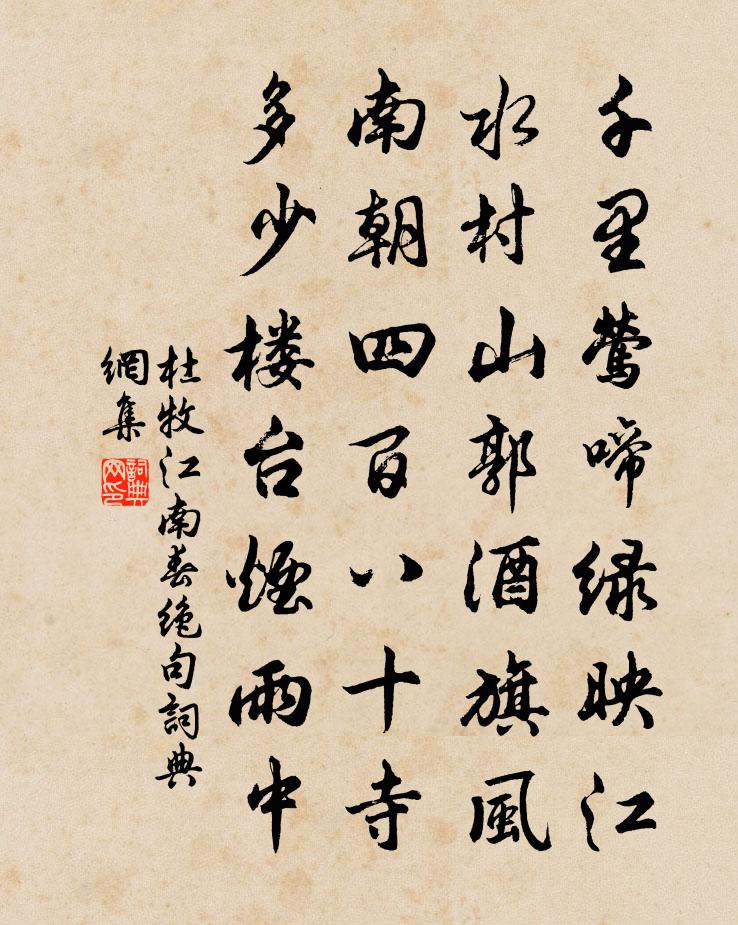 千里鶯啼緑映江
水村山郭酒旗風
南朝四百八十寺
多少楼台煙雨中
杜牧江南春絶句詞典
網集
詞典
网印